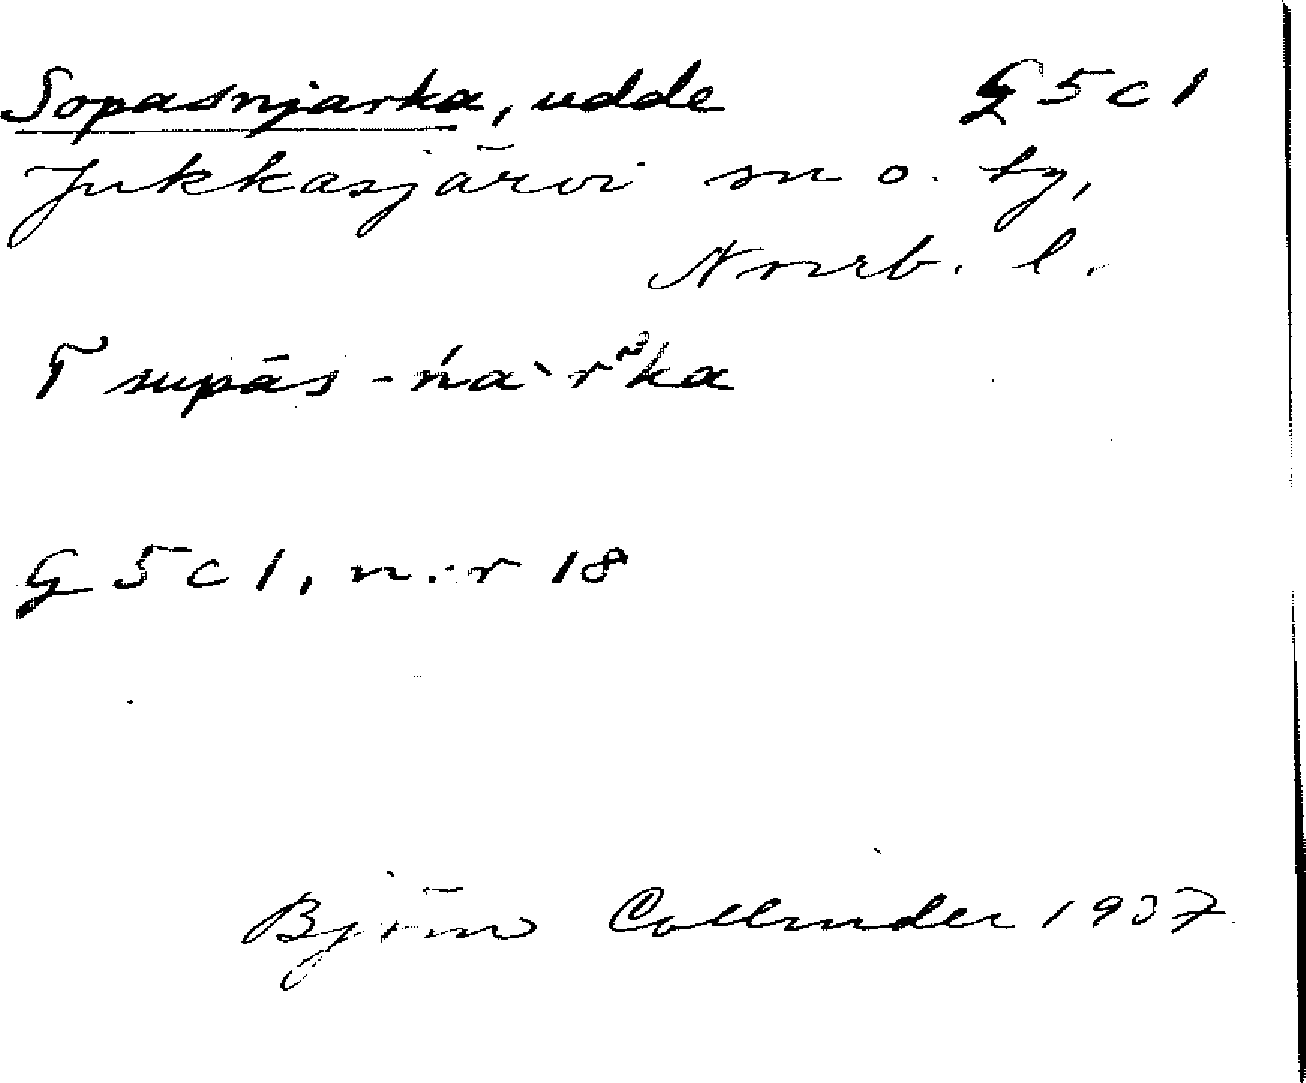 Sopasnjarka, udde G5c1
Jukkasjärvi sn o. tg,
Norrb. l.
T supās-ńa`rˇ³ka
G5c1, n:r 18
Björn Collinder 1937